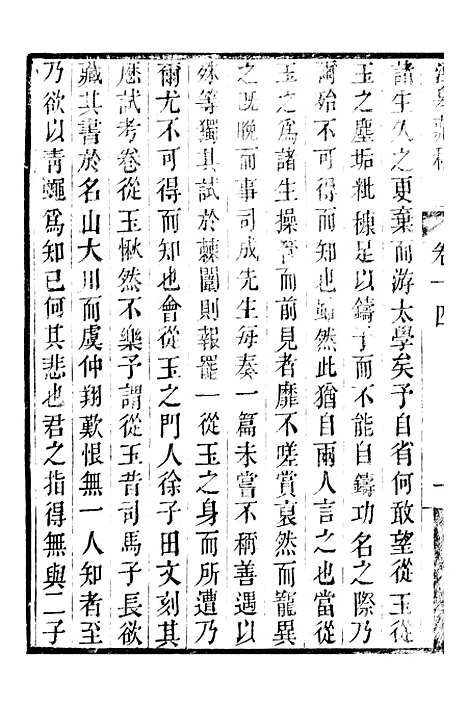 卷十四
諸生久之更棄而游太學矣予自省何敢望從玉從
玉之塵垢粃穅足以鑄予而不能自鑄功名之際乃
爾殆不可得而知也雖然此猶自兩人言之也當從
玉之為諸生操筆而前見者靡不嗟賞裒然而寵異
之既晚而事司成先生每奏一篇未嘗不稱善遇以
殊等獨其試於棘闈則報罷一從玉之身而所遭乃
爾尤不可得而知也會從玉之門人徐子田文刻其
歷試考卷從玉愀然不樂予謂從玉昔司馬子長欲
藏其書於名山大川而虞仲翔歎恨無一人知者至
乃欲以青蠅為知己何其悲也君之指得無與二子